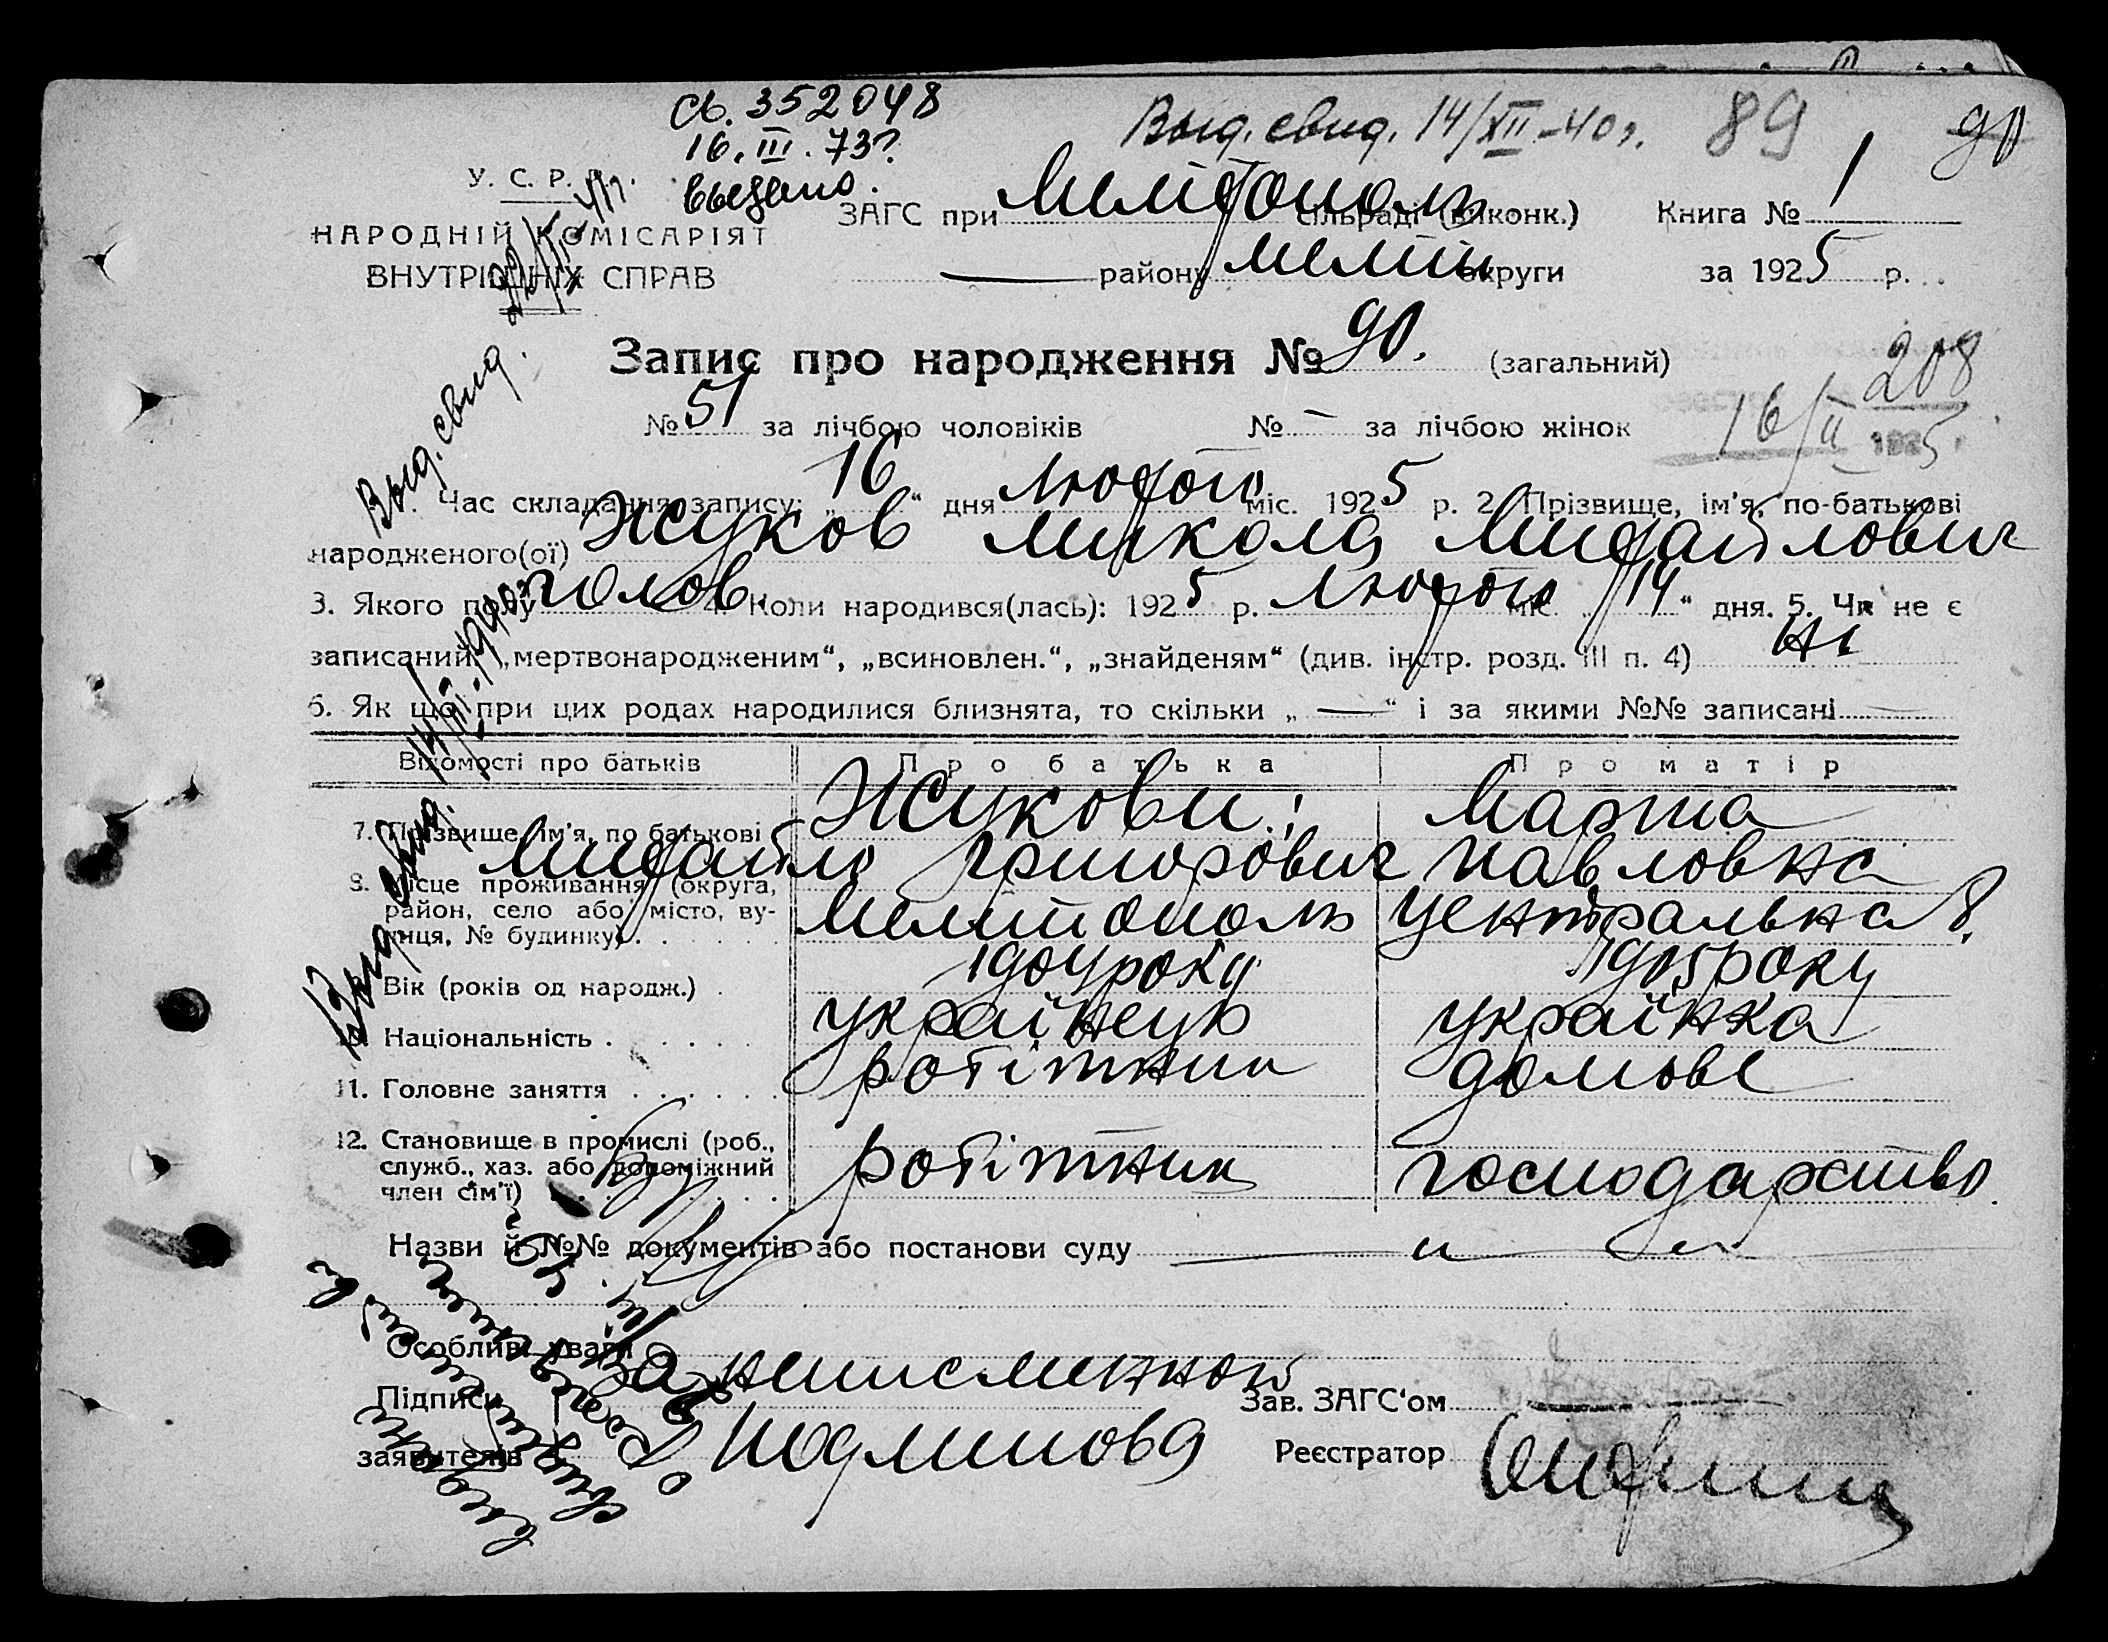 Сь. 352048
16. III. 73г.
выдано.
Выд. свид. 14/XII-40г. 89 90
У. С. Р. Р.
НАРОДНІЙ КОМІСАРІЯТ
ВНУТРІШНІХ СПРАВ
ЗАГС при Мелітополь сільраді (виконк.) Книга № 1
району Меліт округи за 1925 р.
Запис про народження № 90. (загальний)
208
№ 51 за лічбою чоловіків № – за лічбою жінок
16/II 1925
Час складання запису: „16“ дня Лютого міс. 1925 р. 2. Прізвище, ім'я, по-батькові
народженого(ої) Жуков Микола Михайлович
3. Якого полу чолов. 4. Коли народився(лась): 1925 р. Лютого міс. „14“ дня. 5. Чи не є
записаний „мертвонародженим“, „всиновлен.“, „знайденям“ (див. інстр. розд. III п. 4) Ні
6. Як що при цих родах народилися близнята, то скільки „ — “ і за якими №№ записані —
Відомості про батьків Про батька Про матір
7. Прізвище, ім'я, по батькові Жукови: Марта
Михайло Григорович Павловна
8. Місце проживання (округа,
район, село або місто, ву-
лиця, № будинку) Мелітополь Центральна 8.
Вік (років од народж.)
Національність українець українка
11. Головне заняття робітник домове
12. Становище в промислі (роб.,
служб., хаз. або допоміжний
член сім'ї) робітник господарство
Назви й №№ документів або постанови суду
Особливі уваги
Підписи За неписменной
заявителів
Зав. ЗАГС'ом
Реєстратор
Выд. свид.
Выд. свид. 14/XII.1940г.